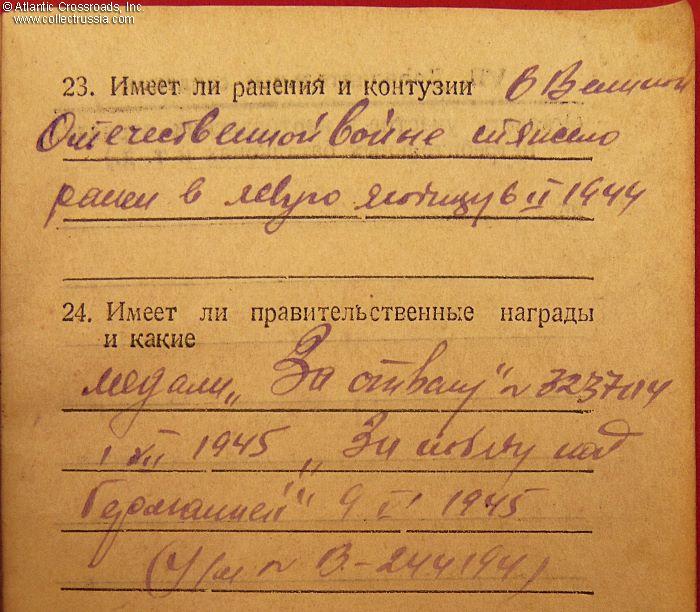 © Atlantic Crossroads, Inc.
www.collectrussia.com
23. Имеет ли ранения и контузии в Великой
Отечественной войне тяжело
ранен в левую ягодицу 6 II 1944
24. Имеет ли правительственные награды
и какие
медали „За отвагу" №
1945 „За победу над
Германией" 9 1945